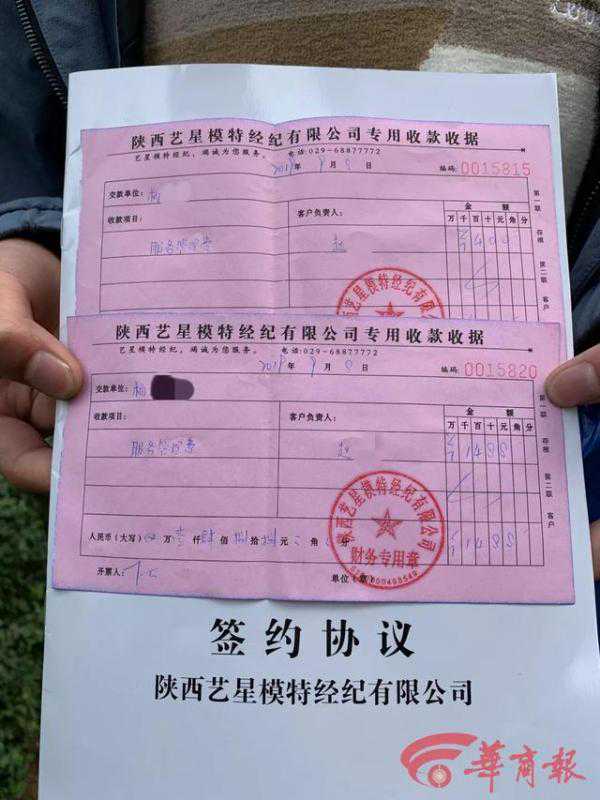 陕西艺星模特经纪有限公司专用收款收据
艺星模特经纪，竭诚为您服务。 电话:029-68877772 2019年9月8日 编码: 0015815
交款单位: 柏
第一联 存根 第二联 客户
收款项目: 客户负责人: 金额
万千百十元角分
服务管理费 赵
陕西艺星模特经纪有限公司
陕西艺星模特经纪有限公司专用收款收据
艺星模特经纪，竭诚为您服务。 电话:029-68877772 2019年9月8日 编码: 0015820
交款单位: 柏
第一联 存根 第二联 客户
收款项目: 客户负责人: 金额
万千百十元角分
服务管理费 赵 1488
陕西艺星模特经纪有限公司
财务专用章
人民币(大写) 万壹仟肆佰捌拾捌元 角 分 1488
开票人: 单位(章)
签约协议
陕西艺星模特经纪有限公司
華商報